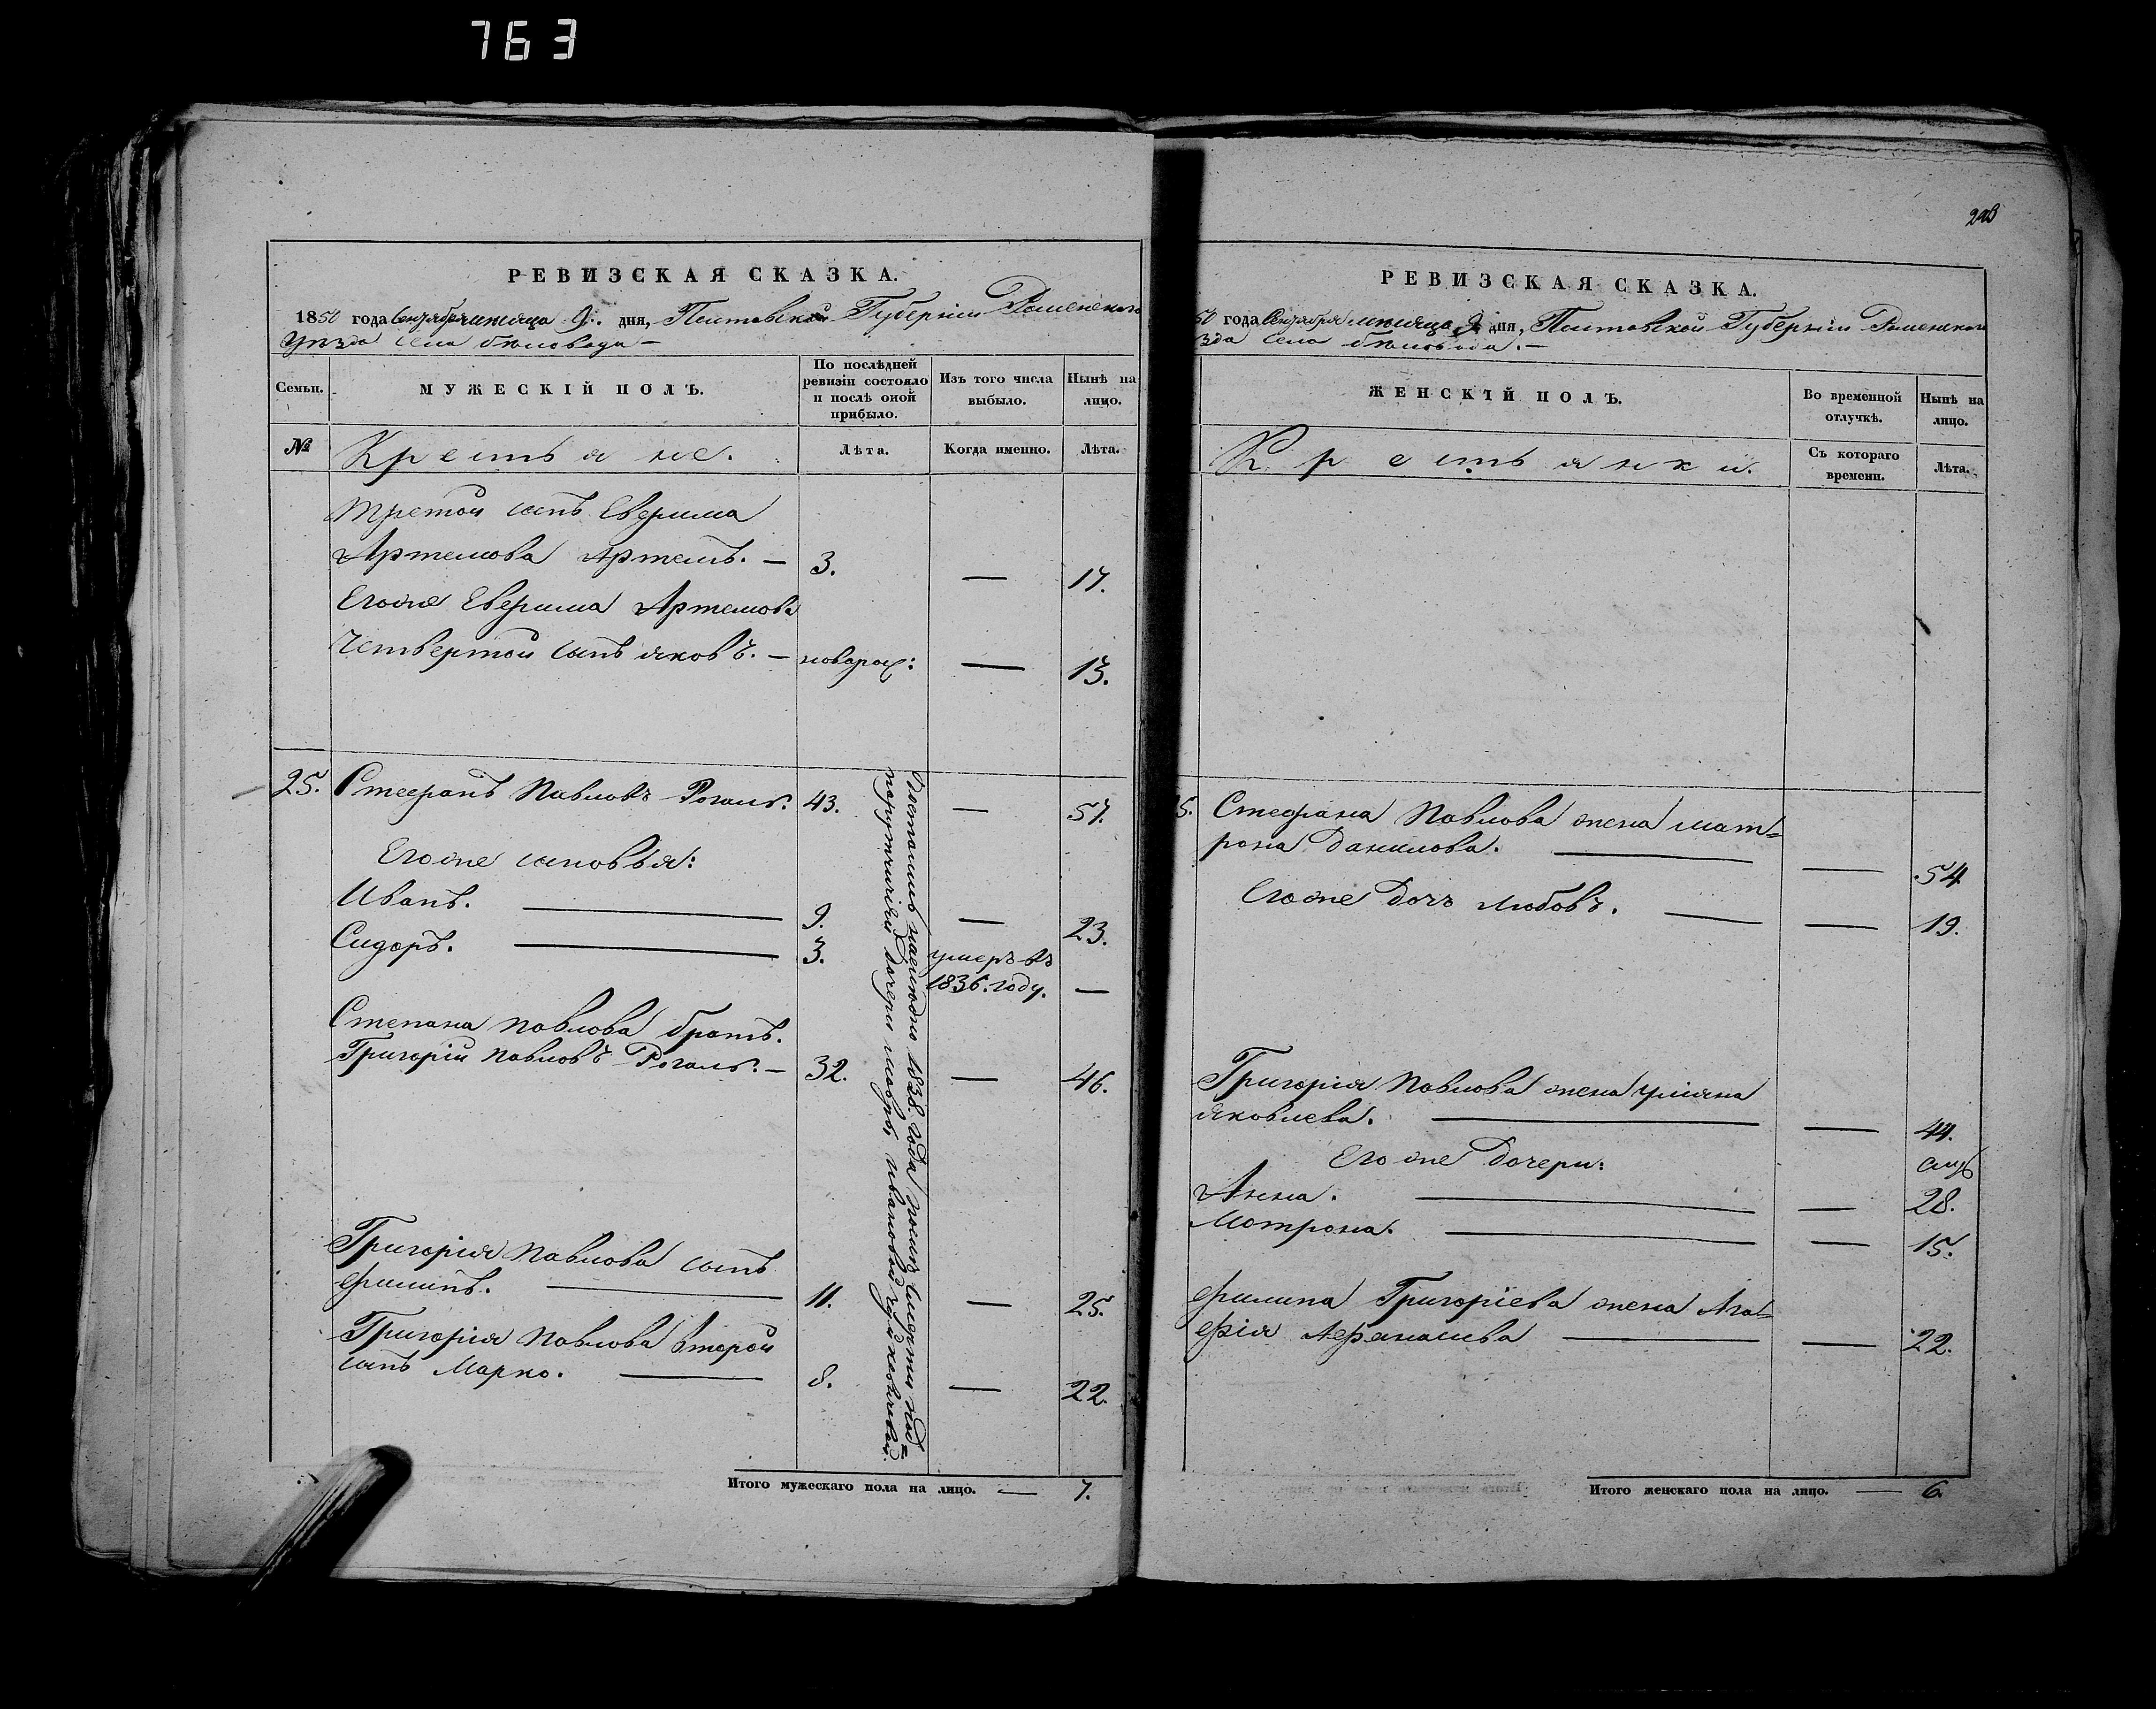 763
РЕВИЗСКАЯ СКАЗКА.
1850 года Сентября месяца 9. дня, Полтавской Губернии Роменскаго
Уезда села беловода —
Семьи.
МУЖЕСКІЙ ПОЛЪ.
По послѣдней ревизіи состояло и послѣ оной прибыло.
Изъ того числа выбыло.
Нынѣ на лицо.
№
Крестьяне.
Лѣта.
Когда именно.
Лѣта.
Третой сынъ Ефрима
Артемова Артемъ. — 3. — 17.
Егоже Ефрима Артемова
Четвертой сынъ яковъ. — новорож: — 13.
25. Стефанъ Павловъ Рогаль. 43. — 57.
Егоже сыновья:
Иванъ. — 9. — 23.
Сидоръ. — 3. умеръ въ
1836. году. —
Степана павлова братъ.
Григорій павловъ Рогаль. — 32. — 46.
Григорія павлова сынъ
филипъ. — 11. — 25.
Григорія павлова второй
сынъ Марко. — 8. — 22.
1838. года
дочери ивановой
Итого мужескаго пола на лицо. — 7.
228
РЕВИЗСКАЯ СКАЗКА.
50 года Сентября месяца 9 дня, Полтавской Губернии Роменскаго
зда села беловода. —
ЖЕНСКІЙ ПОЛЪ.
Во временной отлучкѣ.
Нынѣ на лицо.
Крестьянки.
Съ котораго времени.
Лѣта.
5. Стефана Павлова жена мат-
рона Данилова. — — 54
Егоже дочъ любовъ. — — 19.
Григорія Павлова жена уліяна
яковлева. — — 44.
Егоже дочери:
Анна. — — 28.
Мотрона. — — 15.
филипа Григоріева жена Ага-
фія Афанасиева — — 22.
Итого женскаго пола на лицо. — 6.